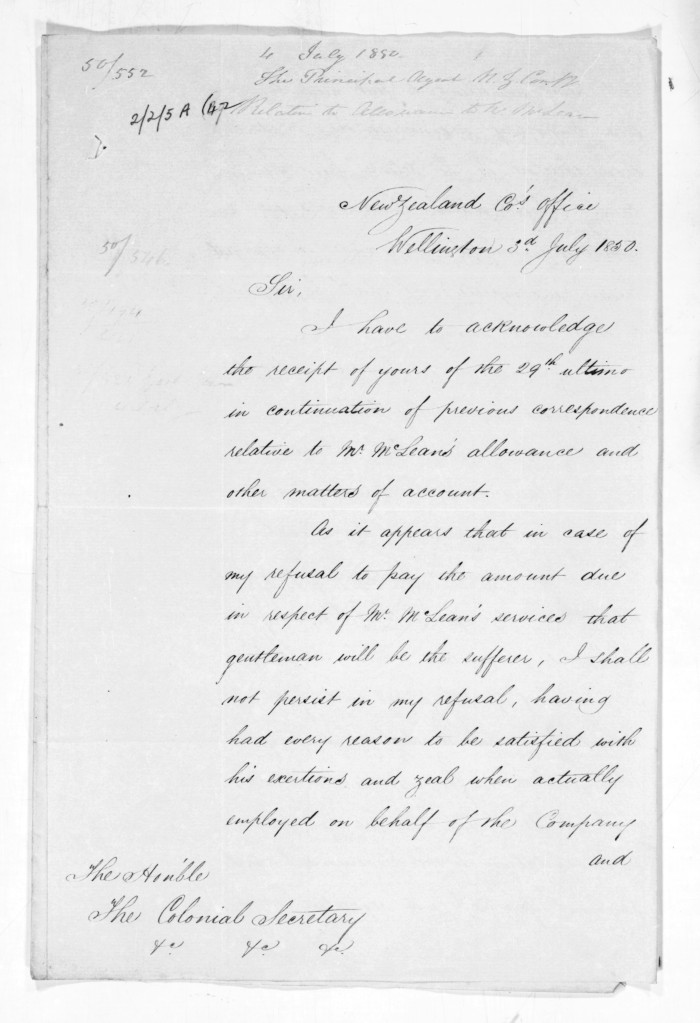 50/552
4 July 1850.
The Principal Agent N Z Comp'y
2/2/5 A (47
Relative to Allowance to Mr McLean
New Zealand Co's. Office
Wellington 3d. July 1850.
50/546
Sir,
I have to acknowledge
the receipt of yours of the 29th. ultimo
in continuation of previous correspondence
relative to Mr. McLean's allowance and
other matters of account.
As it appears that in case of
my refusal to pay the amount due
in respect of Mr. McLean's services that
gentleman will be the sufferer, I shall
not persist in my refusal, having
had every reason to be satisfied with
his exertions and zeal when actually
employed on behalf of the Company
and
The Hon'ble
The Colonial Secretary
&c. &c. &c.